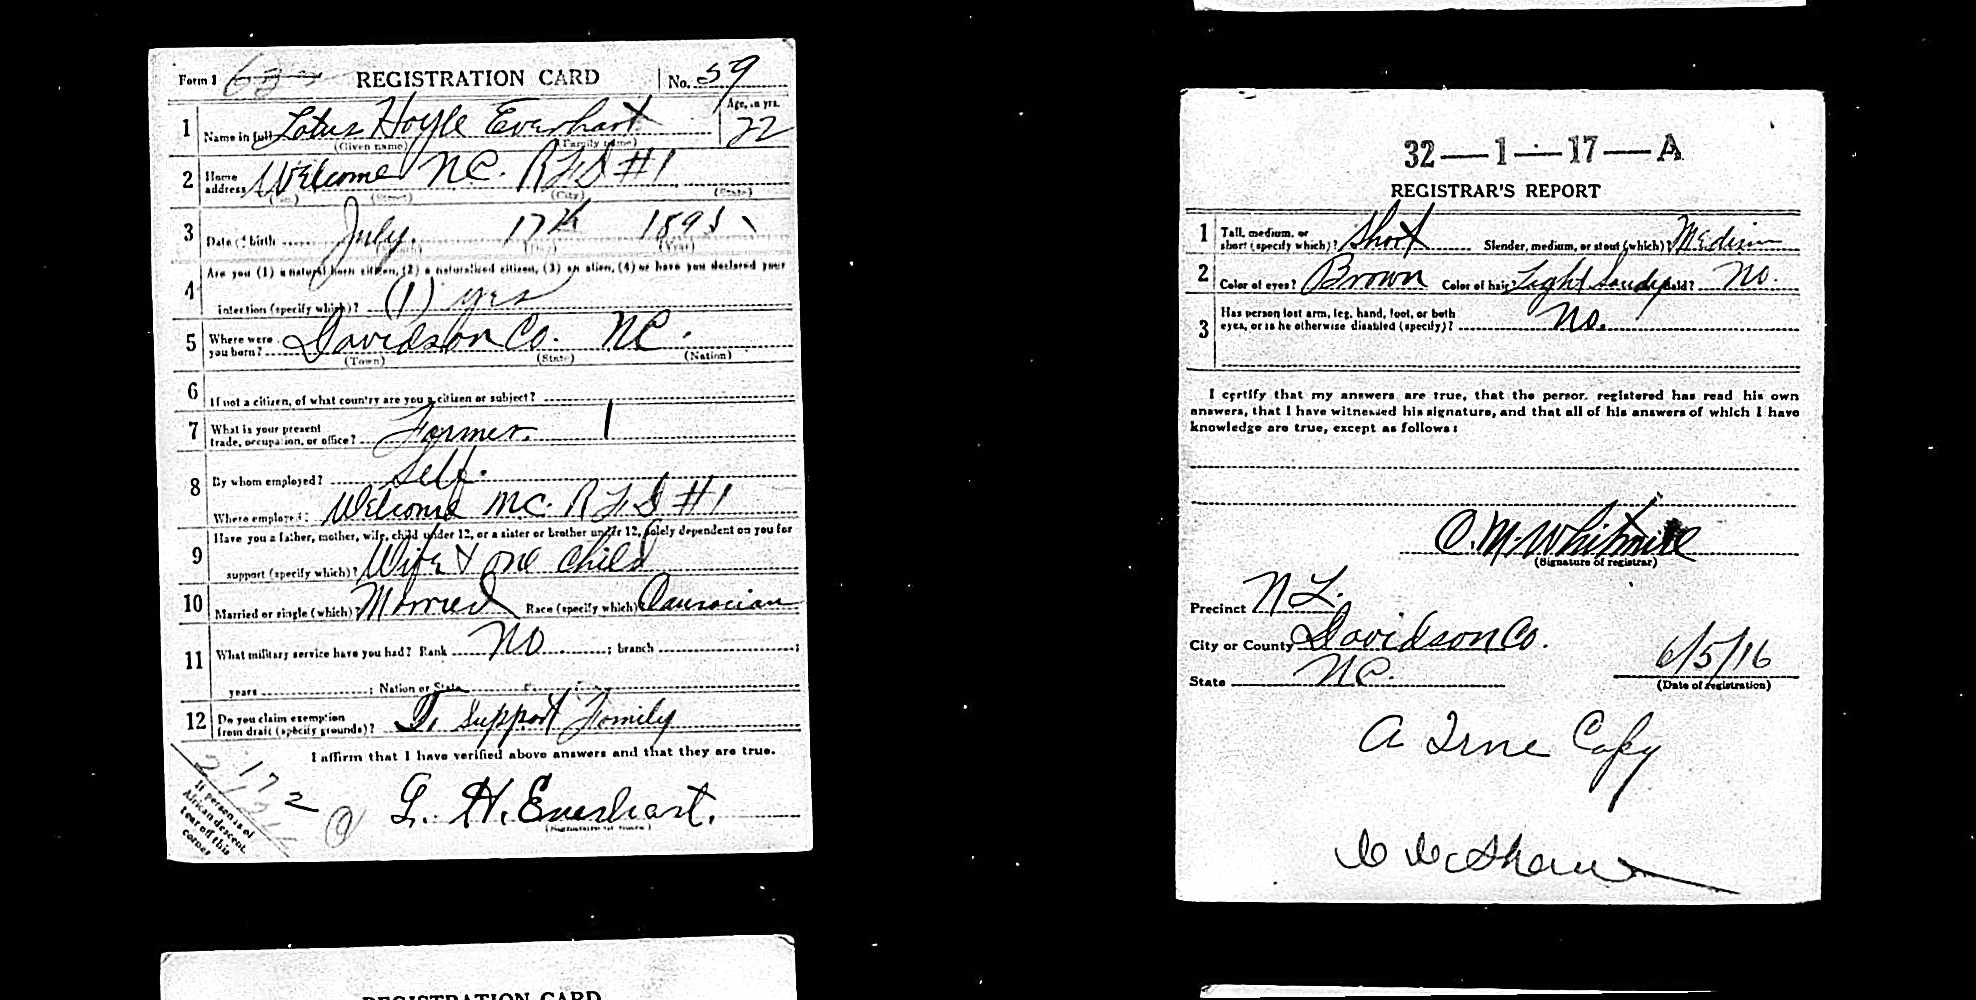 Form 1 REGISTRATION CARD No. 59
1 Name in full Lotus Hoyle Everhart Age, in yrs. 22
(Given name) (Family name)
2 Home address Welcome NC. RFD #1
(No.) (Street) (City) (State)
3 Date of birth July. 17th 1895
(Month) (Day) (Year)
4 Are you (1) a natural born citizen, (2) a naturalized citizen, (3) an alien, (4) or have you declared your
intention (specify which)? (1) yes
5 Where were you born? Davidson Co. NC.
(Town) (State) (Nation)
6 If not a citizen, of what country are you a citizen or subject?
7 What is your present trade, occupation, or office? Farmer. 1
8 By whom employed? Self.
Where employed? Welcome NC. RFD #1
9 Have you a father, mother, wife, child under 12, or a sister or brother under 12, solely dependent on you for
support (specify which)? Wife & one child
10 Married or single (which)? Married Race (specify which)? Caucacian
11 What military service have you had? Rank No ; branch ;
years ; Nation or State
12 Do you claim exemption from draft (specify grounds)? To support Family
I affirm that I have verified above answers and that they are true.
L. H. Everhart.
(Signature or mark)
172
If person is of
African descent,
tear off this
corner
REGISTRATION CARD
32—1—17—A
REGISTRAR'S REPORT
1 Tall, medium, or short (specify which)? Short Slender, medium, or stout (which)? Medium
2 Color of eyes? Brown Color of hair? Light Sandy Bald? No.
3 Has person lost arm, leg, hand, foot, or both
eyes, or is he otherwise disabled (specify)? No.
I certify that my answers are true, that the person registered has read his own
answers, that I have witnessed his signature, and that all of his answers of which I have
knowledge are true, except as follows:
O. M. Whitmire
(Signature of registrar)
Precinct N L.
City or County Davidson Co.
State NC.
6/5/16
(Date of registration)
A True Copy